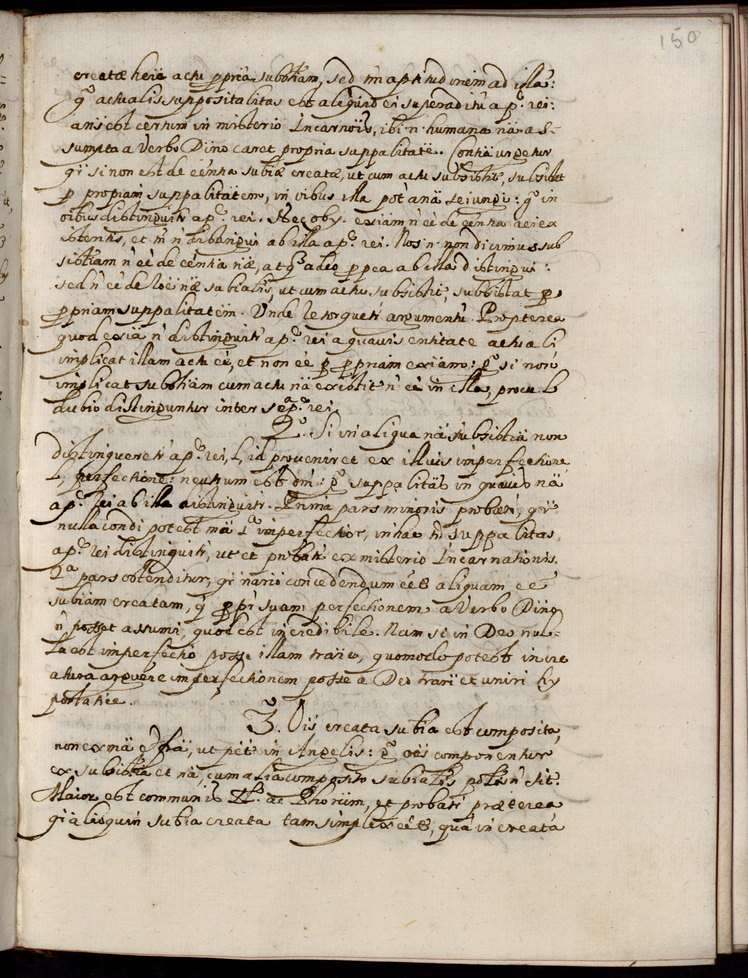 150
creatæ heiẽ actu ppriã subbtiam, sed in aptitudinem ad illã:
gº actualis suppositalitas est aliquid ei superaditũ a pe. rei:
ansest certum in misterio Incarnõis, ibi n. humana nã as-
sumpta a Verbo Dino caret propria suppalitatẽ. Contrã urgetur
qi si non est de eẽntia subiæ creatæ, ut cum actu subsistit, subsistet
p propiam suppalitãtem, in ribus illa pot anã seiungi: gº in
oibus distinguitr a pe. rei. Nec obs. exiam nẽe de eẽntia rei ex
istentis, et tñ n distingui ab illa a pe. rei. Nos n. non dicimus sub
sistiam nẽe de eẽntia næ, atqe adeo ppea ab illa distingui:
sed nẽe de roẽ næ subialis, ut cum actu subsistit, subsistat p
ppriam suppalitatem. Unde retorquetr argumentũ. Propterea
quod exiã n distinguitr a pe. rei a quavis entitate actuali
implicat illam actu ẽe, et non ẽe p ppriam exiam: gº si non
implicat subsistiam cum actu nã existit nẽe in illa, procul
dubio distinguntur inter se a pe. rei.
2º. Si in aliqua nã subsistiã non
distingueretr a pe. rei, l, id proveniret ex illius imperfectione
l, perfectione: neutrum est dm̃: gº suppalitas in quavis nã
a pe. rei ab illa distinguitr. Prima pars minoris probatr, qiã
nulla condi potest nã 1ª imperfectior, in hac tñ suppalitas
a pe. rei distinguitr, ut et probatr ex misterio Incarnationis.
2ª pars ostenditur, qi nariõ concedendum eẽt aliquam ẽe
subiam creatam, q ppr suam perfectionem a Verbo Dino
n posset assumi, quod est incredibile. Nam si in Deo nul-
la est imperfectio posse illam trarẽ, quomodo potest in cre
atura arguere imperfectionem posse a Deo trari et uniri hy
postaticẽ.
3. Ois creata subia est composita,
non ex mã et frã, ut pet in Angelis: gº oẽs componentur
ex subsistia et nã, cum alia compositio subialis pottr n sit.
Maior est communis Phorum, et probatr præterea
qi alioquin subia creata tam simplex eẽt, quã increata